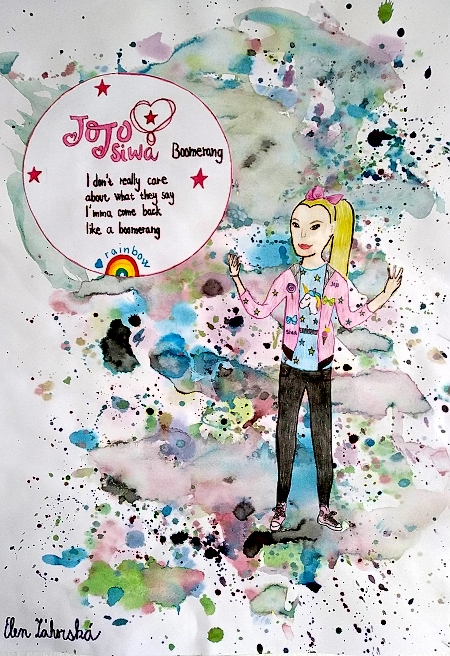 JoJo
Siwa Boomerang
I don't really care
about what they say
I'mma come back
like a boomerang
rainbow
Elen Záhorská